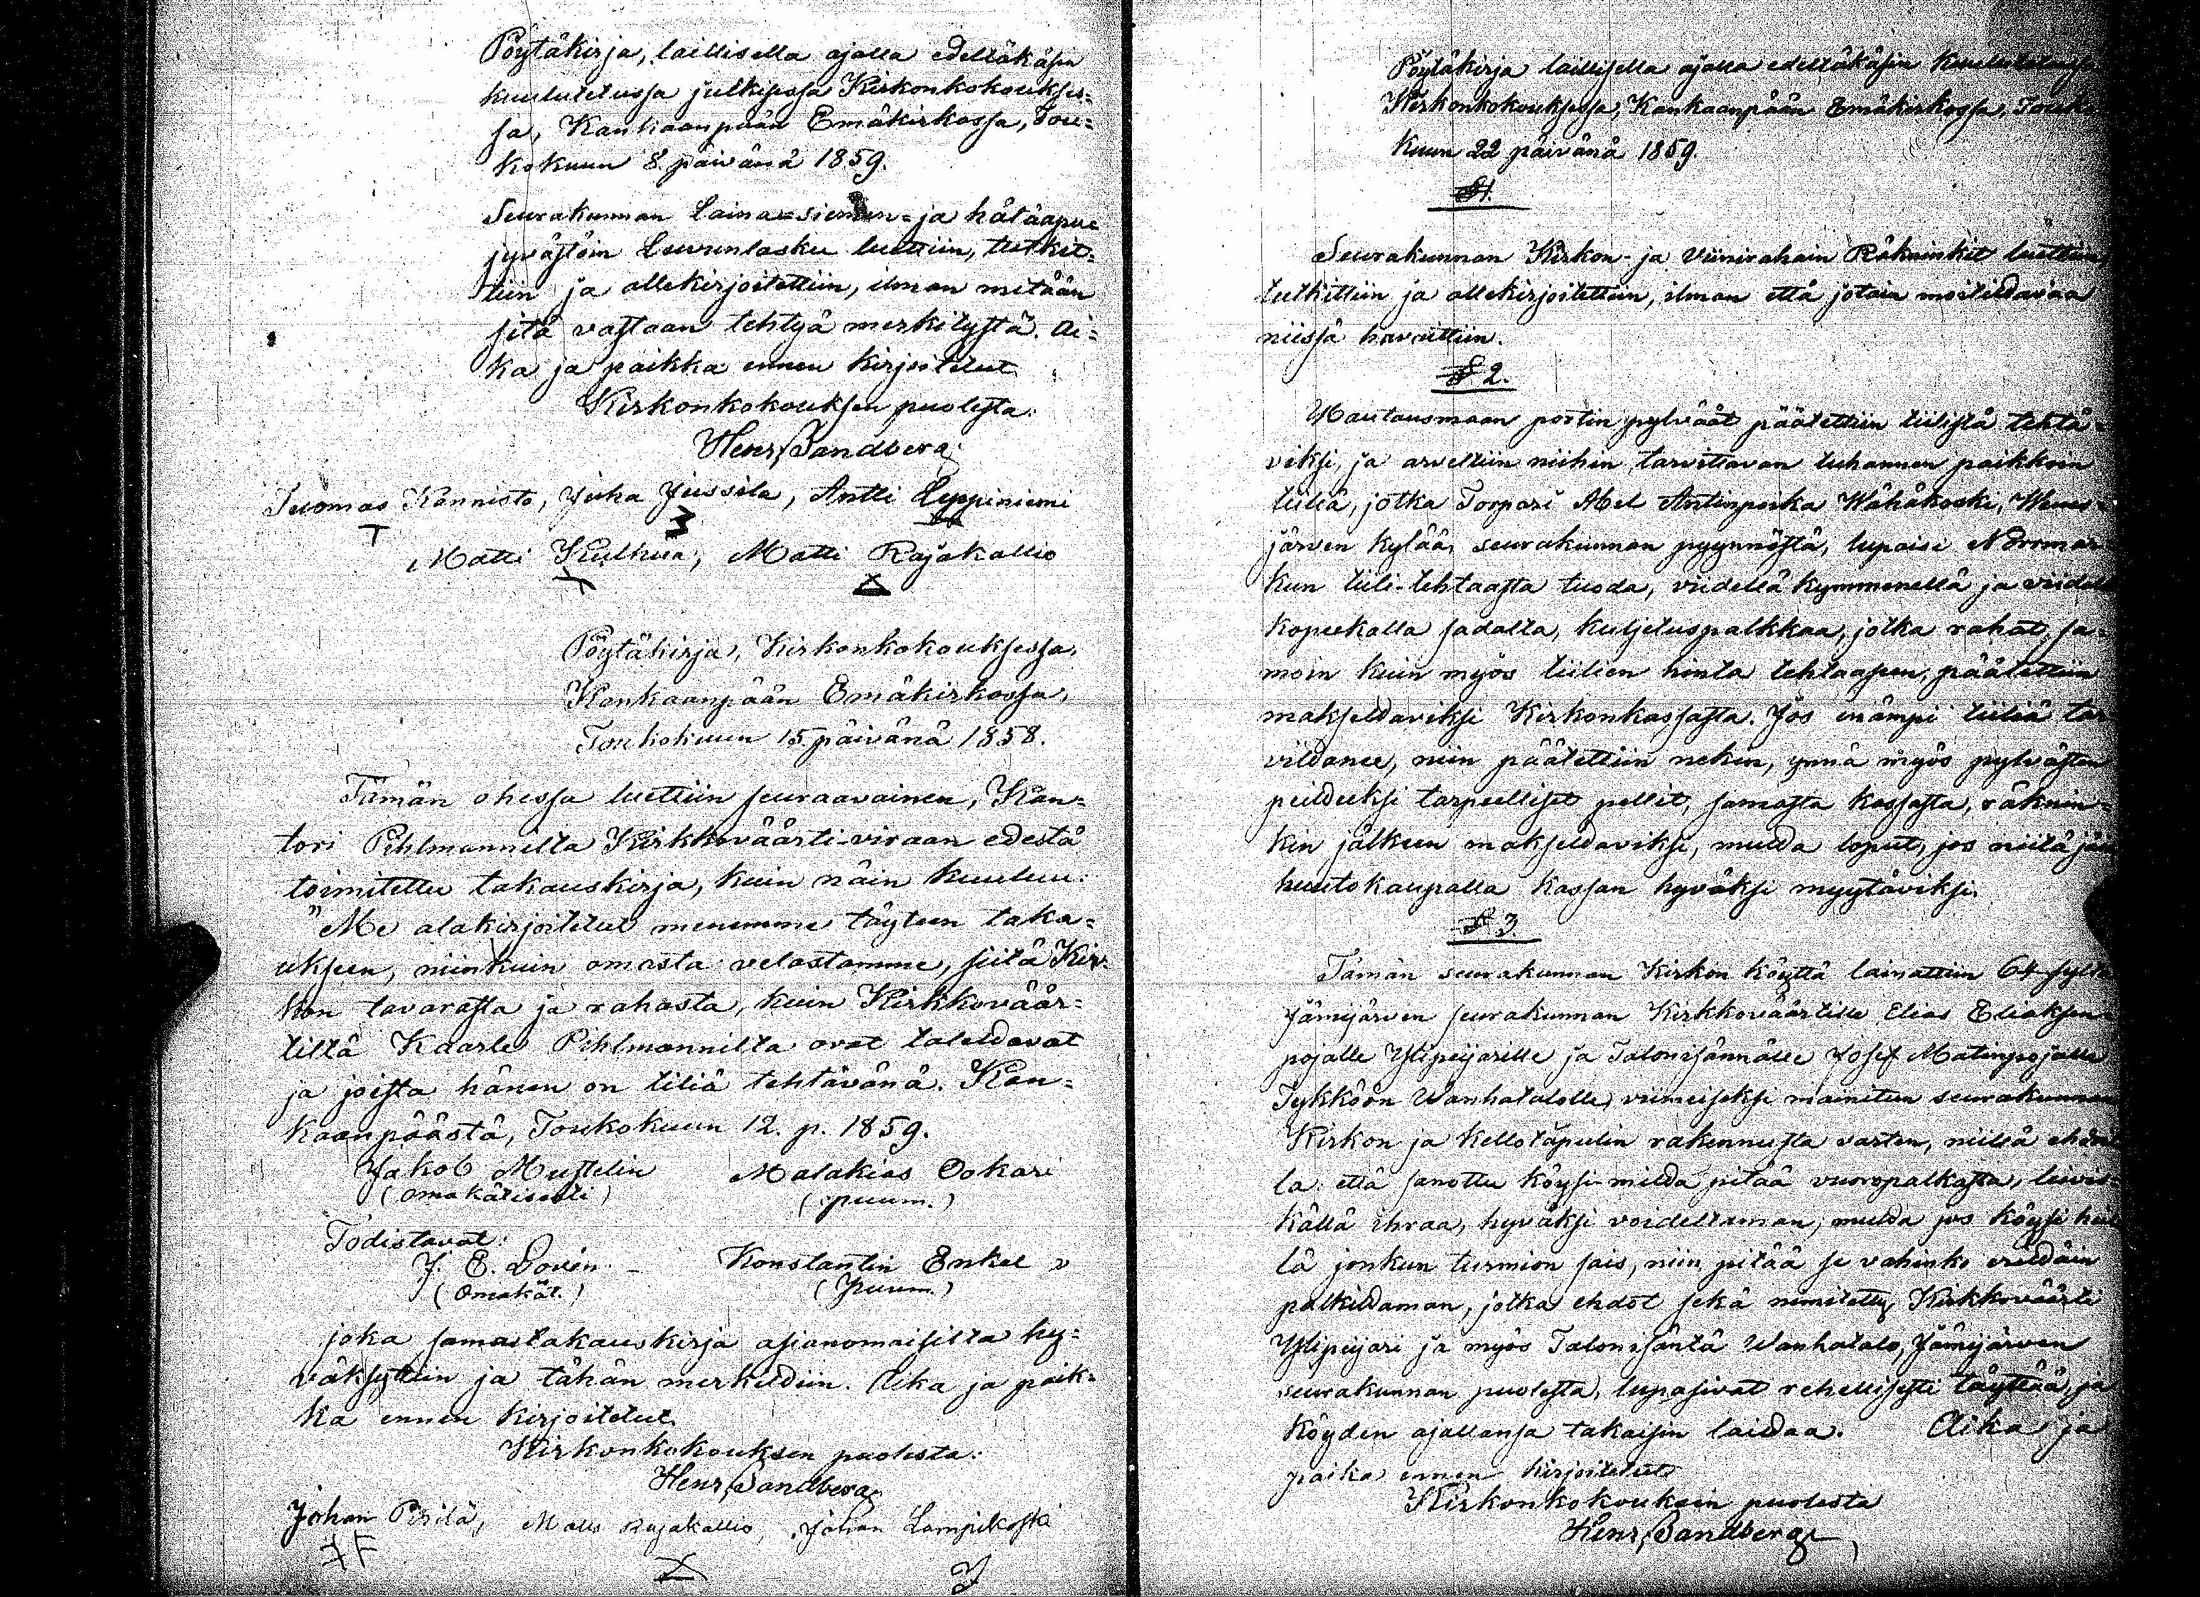 Pöytäkirja, laillisella ajalla edelläkäsin
kuulutetussa julkisessa Kirkonkokoukses=
sa, Kankaanpään Emäkirkossa, Tou=
kokuun 8. päivänä 1859.
Seurakunnan laina=siemen=ja hätäapu=
jyvästöin Luvunlasku luettiin, tutkit=
tiin ja allekirjoitettiin, ilman mitään
sitä vastaan tehtyä merkitystä. Ai=
ka ja paikka ennen kirjoitetut
Kirkonkokouksen puolesta:
Henr. Sandberg.
Tuomas Kannisto, Juha Jussila, Antti Leppiniemi
Matti Kulkua, Matti Rajakallio
Pöytäkirja, Kirkonkokouksessa,
Kankaanpään Emäkirkossa,
Toukokuun 15. päivänä 1858.
Tämän ohessa luettiin seuraavainen, Kan=
tori Pihlmannilta Kirkkoväärti-viraan edestä
toimitettu takauskirja, kuin näin kuuluu:
"Me alakirjoitetut menemme täyteen taka=
ukseen, niinkuin omasta velastamme, siitä Kir=
kon tavarasta ja rahasta, kuin Kirkkoväär=
tiltä Kaarle Pihlmannilta ovat taletdavat
ja joista hänen on tiliä tehtävänä. Kan=
kaanpäästä, Toukokuun 12. p. 1859.
Jakob Mustelin Malakias Ookari
(omakätisesti) (puum.)
Todistavat:
J. E. Lovén. – Konstantin Enkel
(Omakät.) (Puum.)
joka sama takauskirja asianomaisilta hy=
väksyttiin ja tähän merkittiin. Aika ja paik=
ka ennen kirjoitetut.
Kirkonkokouksen puolesta:
Henr. Sandberg.
Johan Pirilä, Matts Rajakallio, Johan Lampikoski
Pöytäkirja laillisella ajalla edelläkäsin
Kirkonkokouksessa, Kankaanpään Emäkirkossa, Touko
Kuun 22 päivänä 1859.
§ 1.
Seurakunnan Kirkon- ja Viinirahain Räkninkit luettiin,
tutkittiin ja allekirjoitettiin, ilman että jotain moitildavaa
niissä havaittiin.
§ 2.
Hautausmaan portin pylväät päätettiin tiilistä tehtä=
viksi, ja arveltiin niihin tarvittavan tuhannen paikkoin
tiiliä, jotka Torpari Abel Antinpoika Wähäkoski,
järven kylää, seurakunnan pyynnöstä, lupaisi Norrmar
kun tiili-tehtaasta tuoda, viidellä kymmenellä ja viidellä
kopeekalla sadalta, kuljetuspalkkaa, jotka rahat, sa=
moin kuin myös tiilien hinta tehtaasen, päätettiin
makseldaviksi Kirkonkassasta. Jos enämpi tiiliä tar
vildanee, niin päätettiin nekin, ynnä myös pylvästen
peildeeksi tarpeelliset pellit, samasta kassasta, räknin=
kin jälkeen makseldaviksi, mulda loput, jos niitä jäi
huutokaupalla kassan hyväksi myytäviksi.
§ 3.
Tämän seurakunnan Kirkon köyttä lainattiin 64 syltä
Jämijärven seurakunnan Kirkkoväärtille Elias Eliaksen
pojalle Ylipeijarille ja Talonisännälle Josef Matinpojalle
Tykköön Wanhatalolle, viimeiseksi mainitun seurakunnan
Kirkon ja kellotapulin rakennusta varten, niillä ehdoi
la: että sanottu köysi milda pitää vuoropalkasta, leivis=
källä ihraa, hyväksi voideltaman, mulda jos köysi heil
tä jonkun turmion sais, niin pitää se vahinko
palkildaman, jotka ehdot sekä nimitetty Kirkkoväärti
Ylipeijari ja myös Talonisäntä Wanhatalo, Jämijärven
seurakunnan puolesta, lupasivat rehellisesti täyttää, ja
köyden ajallansa takaisin laidaa. Aika ja
paika ennen kirjoitetut
Kirkonkokouksin puolesta
Henr. Sandberg